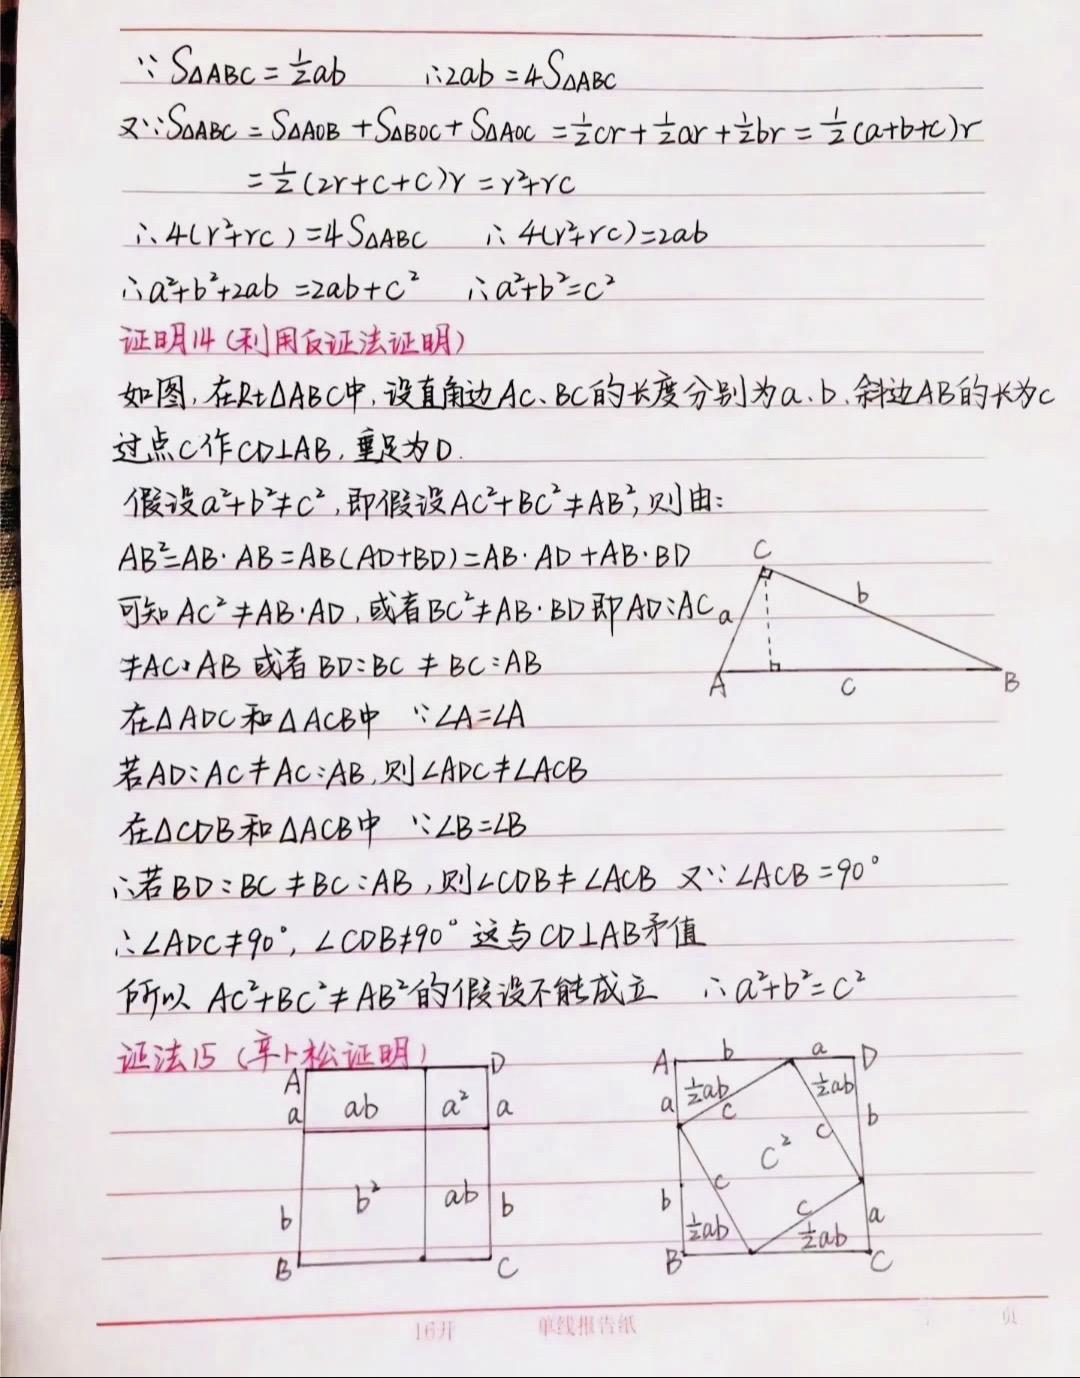 ∵S△ABC=½ab ∴2ab=4S△ABC
又∵S△ABC=S△AOB+S△BOC+S△AOC=½cr+½ar+½br=½(a+b+c)r
=½(2r+c+c)r=r²+rc
∴4(r²+rc)=4S△ABC ∴4(r²+rc)=2ab
∴a²+b²+2ab=2ab+c² ∴a²+b²=c²
证明14(利用反证法证明)
如图,在Rt△ABC中,设直角边AC、BC的长度分别为a、b、斜边AB的长为c
过点C作CD⊥AB,垂足为D.
假设a²+b²≠c²,即假设AC²+BC²≠AB²,则由:
AB²=AB·AB=AB(AD+BD)=AB·AD+AB·BD
可知AC²≠AB·AD,或者BC²≠AB·BD即AD:AC
≠AC:AB或者BD:BC≠BC:AB
C
a
b
A
c
B
在△ADC和△ACB中 ∵∠A=∠A
若AD:AC≠AC:AB,则∠ADC≠∠ACB
在△CDB和△ACB中 ∵∠B=∠B
∴若BD:BC≠BC:AB,则∠CDB≠∠ACB 又∵∠ACB=90°
∴∠ADC≠90°,∠CDB≠90°这与CD⊥AB矛值
所以AC²+BC²≠AB²的假设不能成立 ∴a²+b²=c²
证法15(辛卜松证明)
A D
a ab a² a
b b² ab b
B C
A b a D
a ½ab c ½ab
c² c b
b c c a
½ab ½ab
B C
16开 单线报告纸 页